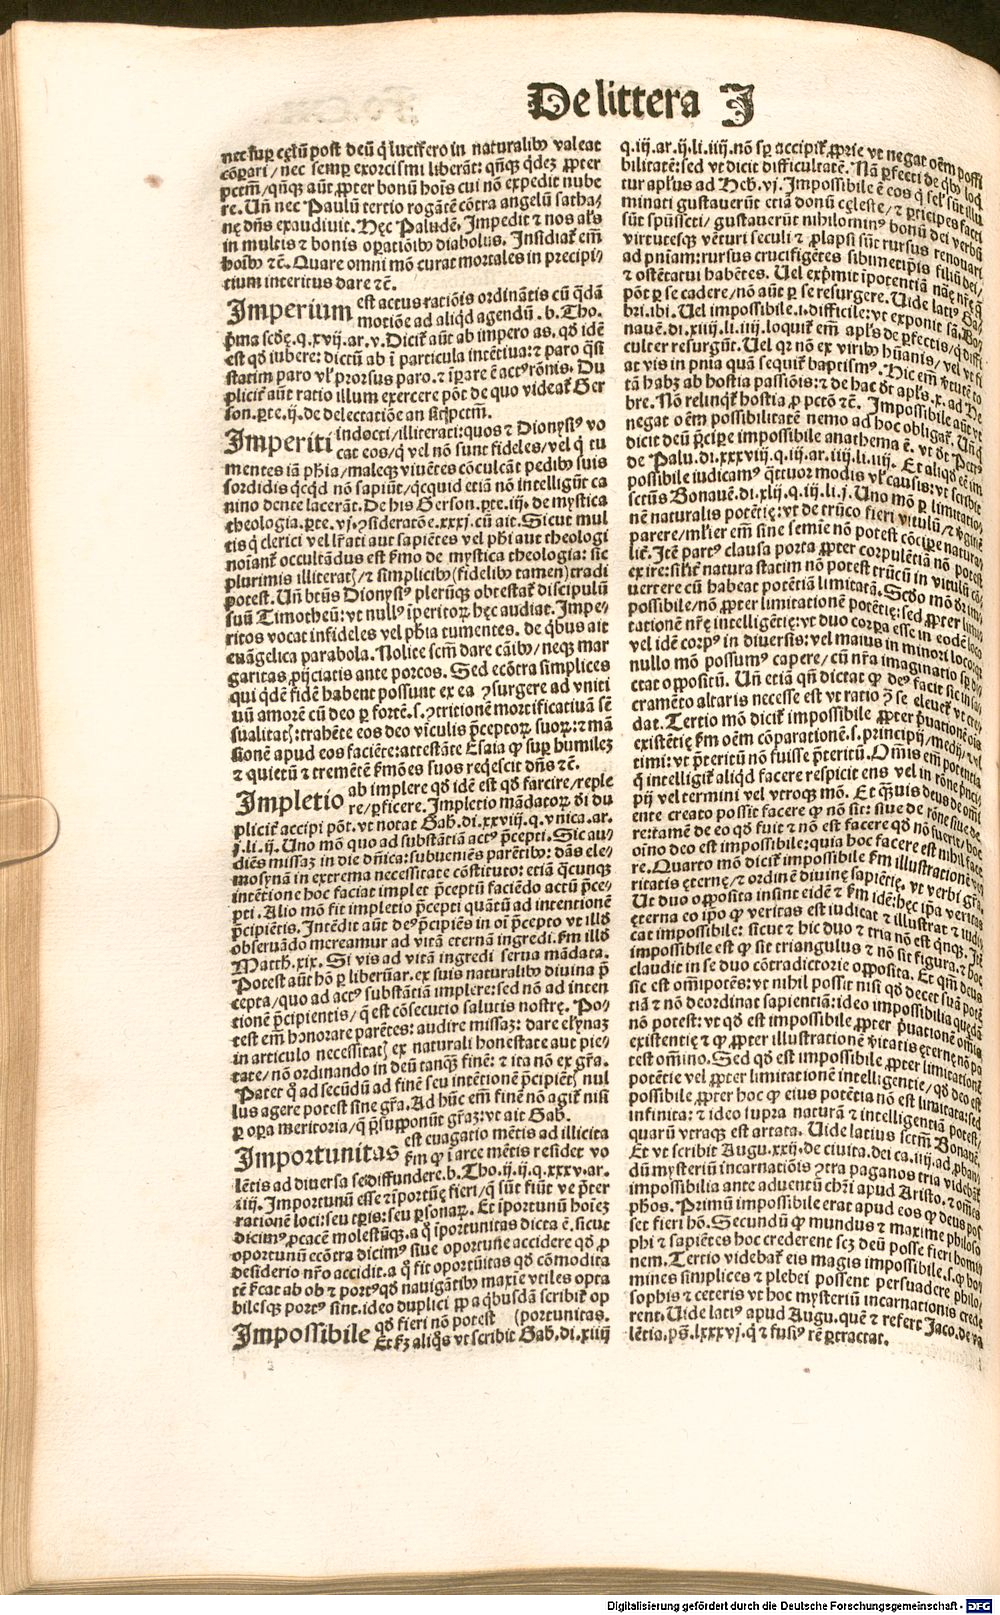 De littera I
nec sup̱ cęlũ post deũ q̇ lucifero in naturalibꝰ valeat
cõparari / nec semp̱ exorcismi liberãt: qñqꝫ qͥdeꝫ ꝓpter
pctm̃ / qñqꝫ aũt ꝓpter bonũ hoĩs cui nõ expedit nube
re. Uñ nec Paulũ tertio rogãtẽ cõtra angelũ satha⸗
nę dñs exaudiuit. Hęc Paludẽ. Impedit ⁊ nos al̃s
in multis ⁊ bonis oꝑatiõibꝰ diabolus. Insidiat̃ em̃
hoĩbꝰ ⁊c̃. Quare omni mõ curat mortales in precipi⸗
tium interitus dare ⁊c̃.
Imperium est actus ratiõis ordinãtis cũ q̇dã
motiõe ad aliqd agendũ. b. Tho.
p̃ma scd̃ę. q. xvij. ar. v. Dicit̃ aũt ab impero as. qd̃ idẽ
est qd̃ iubere: dictũ ab ĩ particula intẽtiua: ⁊ paro q̃si
statim paro vl̃ prorsus paro. ⁊ ĩꝑare ẽ actꝰ rõnis. Du
plicit̃ aũt ratio illum exercere põt de quo videat̃ Ger
son. ꝑte. ij. de delectatiõe an sit pctm̃.
Imperiti indocti / illiterati: quos ⁊ Dionysiꝰ vo
cat eos / q̇ vel nõ sunt fideles / vel q̇ tu
mentes iã ph̃ia / maleqꝫ viuẽtes cõculcãt pedibꝰ suis
sordidis qͥcqͥd nõ sapiũt / qͥcquid etiã nõ intelligũt ca
nino dente lacerãt. De his Gerson. ꝑte. iij. de mystica
theologia. ꝑte. vj. ꝯsideratõe. xxxj. cũ ait. Sicut mul
tis q̇ clerici vel lr̃ati aut sapiẽtes vel ph̃i aut theologi
noĩant̃ occultãdus est ẜmo de mystica theologia: sic
plurimis illiteratꝭ / ⁊ simplicibꝰ (fidelibꝰ tamen) tradi
potest. Uñ bt̃us Dionysiꝰ plerũqꝫ obtestat̃ discipulũ
suũ Timotheũ: vt nullꝰ ĩperitoꝝ hęc audiat. Impe⸗
ritos vocat infideles vel ph̃ia tumentes. de q̇bus ait
euãgelica parabola. Nolite scm̃ dare cãibꝰ / neqꝫ mar
garitas ꝓijciatis ante porcos. Sed ecõtra simplices
qui qͥdẽ fidẽ habent possunt ex ea ꝯsurgere ad vniti
uũ amorẽ cũ deo ꝑ fortẽ. s. ꝯtritionẽ mortificatiuã sẽ
sualitatꝭ: trahẽte eos deo viculis p̃ceptoꝝ suoꝝ: ⁊ mã
sionẽ apud eos faciẽte: attestãte Esaia ꝙ sup̱ humileꝫ
⁊ quietũ ⁊ tremẽtẽ ẜmões suos reqͥescit dñs ⁊c̃.
Impletio ab implere qd̃ idẽ est qd̃ farcire / reple
re / ꝑficere. Impletio mãdatoꝝ dĩ du
plicit̃ accipi põt. vt notat Gab. di. xxviij. q. vnica. ar.
j. li. ij. Uno mõ quo ad substãtiã actꝰ p̃cepti. Sic au⸗
diẽs missaꝫ in die dñica: subueniẽs parẽtibꝰ: dãs ele⸗
mosynã in extrema necessitate cõstituto: etiã qͥcunqꝫ
intẽtione hoc faciat implet p̃ceptũ faciẽdo actũ p̃ce⸗
pti. Alio mõ fit impletio p̃cepti quãtũ ad intentionẽ
p̃cipiẽtis. Intẽdit aũt deꝰ p̃cipiẽs in oĩ p̃cepto vt illd̃
obseruãdo mereamur ad vitã eternã ingredi. ẜm illd̃
Matth. xix. Si vis ad vitã ingredi serua mãdata.
Potest aũt hõ ꝑ liberũar. ex suis naturalibꝰ diuina p̃
cepta / quo ad actꝰ substãtiã implere: sed nõ ad inten
tionẽ p̃cipientis / q̃ est cõsecutio salutis nostrę. Po⸗
test em̃ honorare parẽtes: audire missaꝫ: dare elynaꝫ
in articulo necessitatꝭ ex naturali honestate aut pie⸗
tate / nõ ordinando in deũ tanqꝫ finẽ: ⁊ ita nõ ex gr̃a.
Patet q̇ ad secũdũ ad finẽ seu intẽtionẽ p̃cipiẽtꝭ nul
lus agere potest sine gr̃a. Ad hũc em̃ finẽ nõ agit̃ nisi
ꝑ opa meritoria / q̃ p̃supponũt gr̃aꝫ: vt ait Gab.
Importunitas est euagatio mẽtis ad illicita
ẜm ꝙ ĩ arce mẽtis residet vo
lẽtis ad diuersa se diffundere. b. Tho. ij. ij. q. xxxv. ar.
iiij. Importunũ esse ⁊ ĩportũę fieri / q̃ sũt fiũt ve p̃ter
rationẽ loci: seu tꝑis: seu ꝑsonaꝝ. Et ĩportunũ hoieꝫ
dicimꝰ ꝓcacẽ molestũqꝫ. a q̇ ĩportunitas dicta ẽ. sicut
oportunũ ecõtra dicimꝰ siue oportune accidere qd̃ ꝓ
desiderio nr̃o accidit. a q̇ fit oportũitas qd̃ cõmodita
tẽ ẜcat ab ob ⁊ portꝰqd̃ nauigãtibꝰ maxĩe vtiles opta
bilesqꝫ portꝰ sint. ideo duplici pp a q̇busdã scribit̃ op
(portunitas.
Impossibile qd̃ fieri nõ potest
Et ẜꝫ aliq̃s vt scribit Gab. di. xiiij
q. iij. ar. ij. li. iiij. nõ sꝑ accipit̃ ꝓprie vt negat oẽm possi
bilitatẽ: sed vt dicit difficultatẽ. Nã ꝑfecti de qͥbꝰ loq̃
tur apl̃us ad Heb. vj. Impossibile ẽ eos q̇ sel̃ sũt illu
minati gustauerũt etiã donũ cęleste / ⁊ ꝑticipes facti
sũt spũssctĩ / gustauerũt nihilominꝰ bonũ dei verbũ
virtutesqꝫ vẽturi seculi ⁊ ꝓlapsi sũt rursus renouari
ad pniam: rursus crucifigẽtes sibimetipĩs filiũ dei /
⁊ ostẽtatui habẽtes. Uel exp̃mit ĩpotentiã nãę nr̃ę q̃
põt ꝑ se cadere / nõ aũt ꝑ se resurgere. Uide latiꝰ Ga⸗
bri. ibi. Uel impossibile. i. difficile: vt exponit sã. Bo⸗
nauẽ. di. xiiij. li. iiij. loquit̃ em̃ apl̃s de ꝑfectis / q̇ diffi
culter resurgũt. Uel qꝛ nõ ex viribꝰ hũanis / vel vt fi
at vis in pnia quã sequit̃ baptismꝰ. Hic em̃ v̾tutẽ to
tã habꝫ ab hostia passiõis: ⁊ de hac dt̃ apl̃s. x. ad He
bre. Nõ relinqt̃ hostia ꝓ pctõ ⁊c̃. Impossibile aũt vt
negat oẽm possibilitatẽ nemo ad hoc obligat̃. Unde
dicit deũ p̃cipe impossibile anathema ẽ. vt dt̃ Petrꝰ
de Palu. di. xxxviij. q. iij. ar. iiij. li. iiij. Et aliqd̃ eẽ im
possibile iudicamꝰ qͣttuor modis vl̃ causis: vt scribit
sctũs Bonauẽ. di. xlij. q. iij. li. j. Uno mõ ꝑ limitatio
nẽ naturalis potẽtię: vt de trũco fieri vitulũ / ⁊ v̾ginẽ
parere / ml̃ier em̃ sine semĩe nõ potest cõcipe natura⸗
lit̃. Itẽ partꝰ clausa porta ꝓpter corpulẽtiã nõ potest
exire: sil̃it̃ natura statim nõ potest trũcũ in vitulũ cõ⸗
uertere cũ habeat potẽtiã limitatã. Scd̃o mõ dr̃ im⸗
possibile / nõ ꝓpter limitationẽ potẽtię: sed ꝓpter limi⸗
tationẽ nr̃ę intelligẽtię: vt duo corꝑa esse in eodẽ loco
vel idẽ corpꝰ in diuersis: vel maius in minori loco: qꝛ
nullo mõ possumꝰ capere / cũ nr̃a imaginatio sꝑ di⸗
ctat oppositũ. Uñ etiã qñ dictat ꝙ deꝰ facit sic in sa⸗
cramẽto altaris necesse est vt ratio ꝯ̃ se eleuet̃ vt cre⸗
dat. Tertio mõ dicit̃ impossibile ꝓpter p̃uationẽ ois
existẽtię ẜm oẽm cõparationẽ. s. principij / medij / ⁊ vl
timi: vt p̃teritũ nõ fuisse p̃teritũ. Om̃is em̃ potentia
q̃ intelligit̃ aliqd̃ facere respicit ens vel in rõne p̃nci⸗
pij vel termini vel vtroqꝫ mõ. Et qͣꝫuis deus de om̃i
ente creato possit facere ꝙ nõ sit: siue de rõne siue de
re: tamẽ de eo qd̃ fuit ⁊ nõ est facere qd̃ nõ fuerit / hoc
oĩno deo est impossibile: quia hoc facere est nihil face
re. Quarto mõ dicit̃ impossibile ẜm illustrationẽ ve
ritatis ęternę / ⁊ ordinẽ diuinę sapiẽtię. vt verbi gr̃a.
Ut duo opposita insint eidẽ ⁊ ẜm idẽ: hęc ip̃a veritas
ęterna eo ip̃o ꝙ veritas est iudicat ⁊ illustrat ⁊ iudi
cat impossibile: sicut ⁊ hic duo ⁊ tria nõ est qͥnqꝫ. Itẽ
impossibile est ꝙ sit triangulus ⁊ nõ sit figura. ⁊ hoc
claudit in se duo cõtradictorie opposita. Et qm̃ deus
sic est om̃ipotẽs: vt nihil possit nisi qd̃ decet suã potẽ
tiã ⁊ nõ deordinat sapientiã: ideo impossibilia quędã
nõ potest: vt qd̃ est impossibile ꝓpter p̃uationẽ om̃is
existentię ⁊ ꝙ ꝓpter illustrationẽ v̾itatis ęternę nõ po
test om̃ino. Sed qd̃ est impossibile ꝓpter limitationẽ
potẽtie vel ꝓpter limitationẽ intelligentie / qd̃ deo est
possibile ꝓpter hoc ꝙ eius potẽtia nõ est limitata: sed
infinita: ⁊ ideo supra naturã ⁊ intelligentiã potest /
quarũ vtraqꝫ est artata. Uide latius sctm̃ Bonauẽ.
Et vt scribit Augu. xxij. de ciuita. dei ca. iiij. ad ꝓban
dũ mysteriũ incarnatiõis ꝯtra paganos tria videbãt̃
impossibilia ante aduentũ chr̃i apud Aristo. ⁊ om̃es
phos. Primũ impossibile erat apud eos ꝙ deus pos
set fieri hõ. Secundũ ꝙ mundus ⁊ maxime philoso
phi ⁊ sapiẽtes hoc crederent scꝫ deũ posse fieri homi
nem. Tertio videbat̃ eis magis impossibile. s. ꝙ ho⸗
mines simplices ⁊ plebei possent persuadere philo⸗
sophis ⁊ ceteris vt hoc mysteriũ incarnationis crede
rent. Uide latiꝰ apud Augu. quẽ ⁊ refert Jaco. de va
lẽtia. ps̃. lxxxvj. q̇ ⁊ fusiꝰ rẽ ꝑtractat.
Digitalisierung gefördert durch die Deutsche Forschungsgemeinschaft - DFG